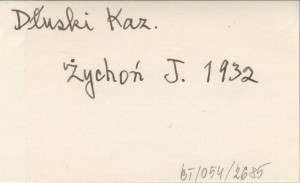 Dłuski Kaz.
Żychoń J. 1932
BJ/054/2685